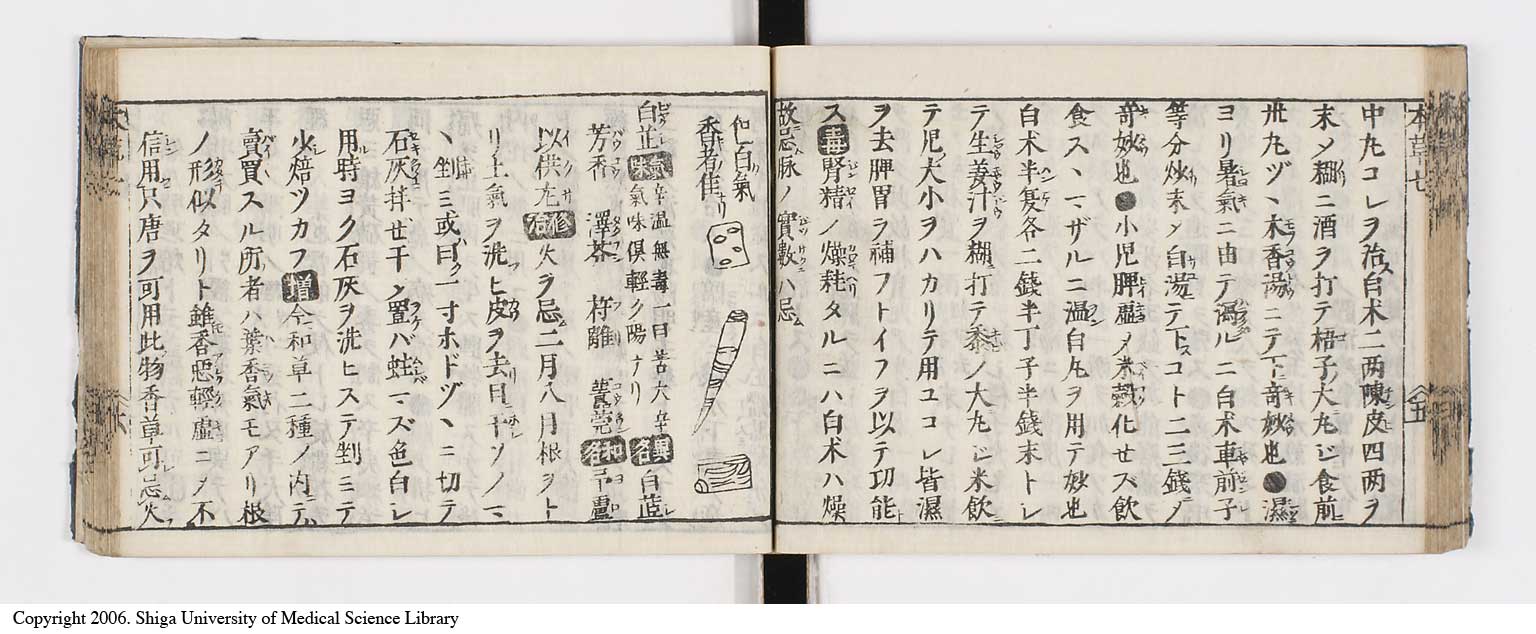 中丸コレヲ治ス白朮二两陳皮四两ヲ
末メ糊ニ酒ヲ打テ梧子大丸ジ食前
卅丸ヅヽ木香湯ニテ下奇妙也●濕
ヨリ暑氣ニ由テ瀉ルニ白朮車前子
等分炒末メ白湯テ下スコト二三錢メ
奇妙也●小児脾虚メ米穀化セズ飲
食スヽマザルニ温白丸ヲ用テ妙也
白朮半夏各二錢半丁子半錢末トレ
テ生姜汁ヲ糊打テ黍ノ大丸ジ米飲
テ児大小ヲハカリテ用ユコレ皆濕
ヲ去脾胃ヲ補フトイフヲ以テ功能
ス毒腎精ノ燥耗タルニハ白朮ハ燥
故忌脉ノ實數ハ忌
白氣
香者佳
白芷氣味辛温無毒一曰苦大辛異名白茝
氣味倶輕ク陽ナリ
芳香 澤芬 苻離 和名
以供尤修治火ヲ忌二月八月根ヲト
リ土氣ヲ洗ヒ皮ヲ去日干ソノマ
ヽ剉三或曰ク一寸ホドヅヽニ切テ
石灰拌セ干メ置バ蛀マズ色白レ
用時ヨク石灰ヲ洗ヒステ剉ミテ
火焙ツカフ増今和草二種ノ内テ
賣買スル所者ハ葉香氣モアリ根
ノ形似タリト雖香悪輕虚ニメ不
信用只唐ヲ可用此物香草可忌火
本草七
五
Copyright 2006. Shiga University of Medical Science Library